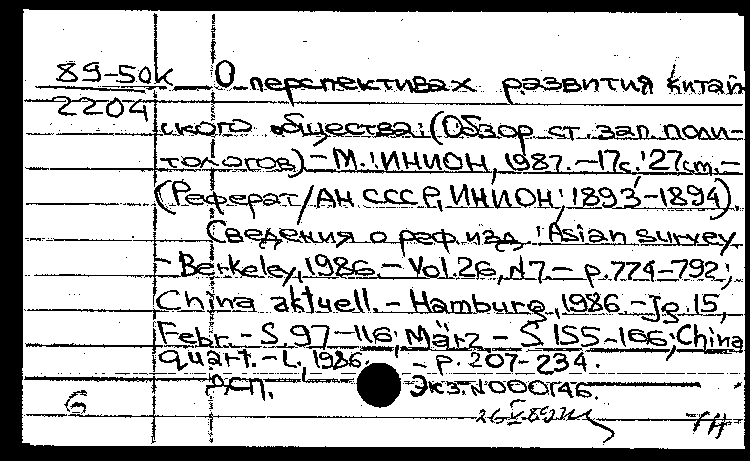 89-50К О перспективах развития китай
2204
ского общества: (Обзор ст. зап. поли-
тологов) - М.: ИНИОН, 1987. - 17с.; 27см. -
(Реферат / АН СССР, ИНИОН; 1893-1894).
Сведения о реф. изд.: Asian survey
- Berkeley, 1986. - Vol. 26, N7. - p. 774-792;
China aktuell. - Hamburg, 1986. - Jg. 15,
Febr. - S. 97-116; März - S 155-166; China
quart. - L., 1986. - P. 207-234.
Дсп. Экз. N000146.
6